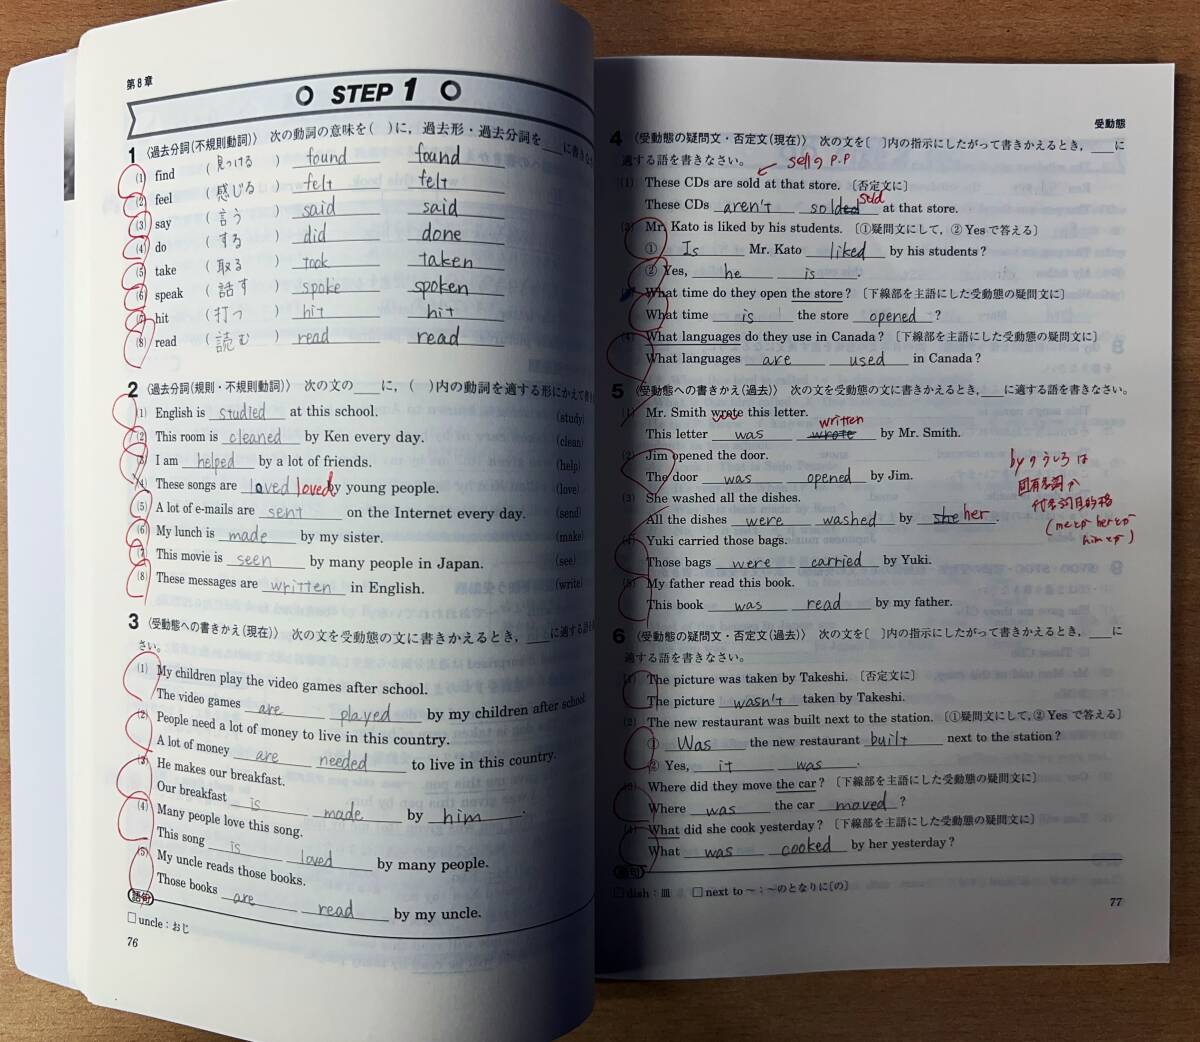 第8章
STEP 1
1 〈過去分詞(不規則動詞)〉 次の動詞の意味を( )に，過去形・過去分詞を＿＿に書きな
(1) find ( 見つける ) found found
(2) feel ( 感じる ) felt felt
(3) say ( 言う ) said said
(4) do ( する ) did done
(5) take ( 取る ) took taken
(6) speak ( 話す ) spoke spoken
(7) hit ( 打つ ) hit hit
(8) read ( 読む ) read read
2 〈過去分詞(規則・不規則動詞)〉 次の文の＿＿に，( )内の動詞を適する形にかえて書き
(1) English is studied at this school. (study)
(2) This room is cleaned by Ken every day. (clean)
(3) I am helped by a lot of friends. (help)
(4) These songs are loved loved by young people. (love)
(5) A lot of e-mails are sent on the Internet every day. (send)
(6) My lunch is made by my sister. (make)
(7) This movie is seen by many people in Japan. (see)
(8) These messages are written in English. (write)
3 〈受動態への書きかえ(現在)〉 次の文を受動態の文に書きかえるとき，＿＿に適する語を
さい。
(1) My children play the video games after school.
The video games are played by my children after school
(2) People need a lot of money to live in this country.
A lot of money are needed to live in this country.
(3) He makes our breakfast.
Our breakfast is made by him.
(4) Many people love this song.
This song is loved by many people.
(5) My uncle reads those books.
Those books are read by my uncle.
語句
□ uncle：おじ
76
受動態
4 〈受動態の疑問文・否定文(現在)〉 次の文を〔 〕内の指示にしたがって書きかえるとき，＿＿に
適する語を書きなさい。
sellの P.P
(1) These CDs are sold at that store. 〔否定文に〕
These CDs aren't solded sold at that store.
(2) Mr. Kato is liked by his students. 〔①疑問文にして，② Yes で答える〕
① Is Mr. Kato liked by his students ?
② Yes, he is .
What time do they open the store ? 〔下線部を主語にした受動態の疑問文に〕
What time is the store opened ?
(4) What languages do they use in Canada ? 〔下線部を主語にした受動態の疑問文に〕
What languages are used in Canada ?
5 〈受動態への書きかえ(過去)〉 次の文を受動態の文に書きかえるとき，＿＿に適する語を書きなさい。
(1) Mr. Smith wrote this letter.
This letter was wrote written by Mr. Smith.
(2) Jim opened the door.
The door was opened by Jim.
(3) She washed all the dishes.
All the dishes were washed by she her.
(4) Yuki carried those bags.
Those bags were carried by Yuki.
(5) My father read this book.
This book was read by my father.
byのうしろは
固有名詞か
代名詞目的格
(meとか herとか
himとか)
6 〈受動態の疑問文・否定文(過去)〉 次の文を〔 〕内の指示にしたがって書きかえるとき，＿＿に
適する語を書きなさい。
(1) The picture was taken by Takeshi. 〔否定文に〕
The picture wasn't taken by Takeshi.
(2) The new restaurant was built next to the station. 〔①疑問文にして，② Yes で答える〕
① Was the new restaurant built next to the station ?
② Yes, it was .
(3) Where did they move the car ? 〔下線部を主語にした受動態の疑問文に〕
Where was the car moved ?
(4) What did she cook yesterday ? 〔下線部を主語にした受動態の疑問文に〕
What was cooked by her yesterday ?
語句
□ dish：皿 □ next to ～：～のとなりに〔の〕
77